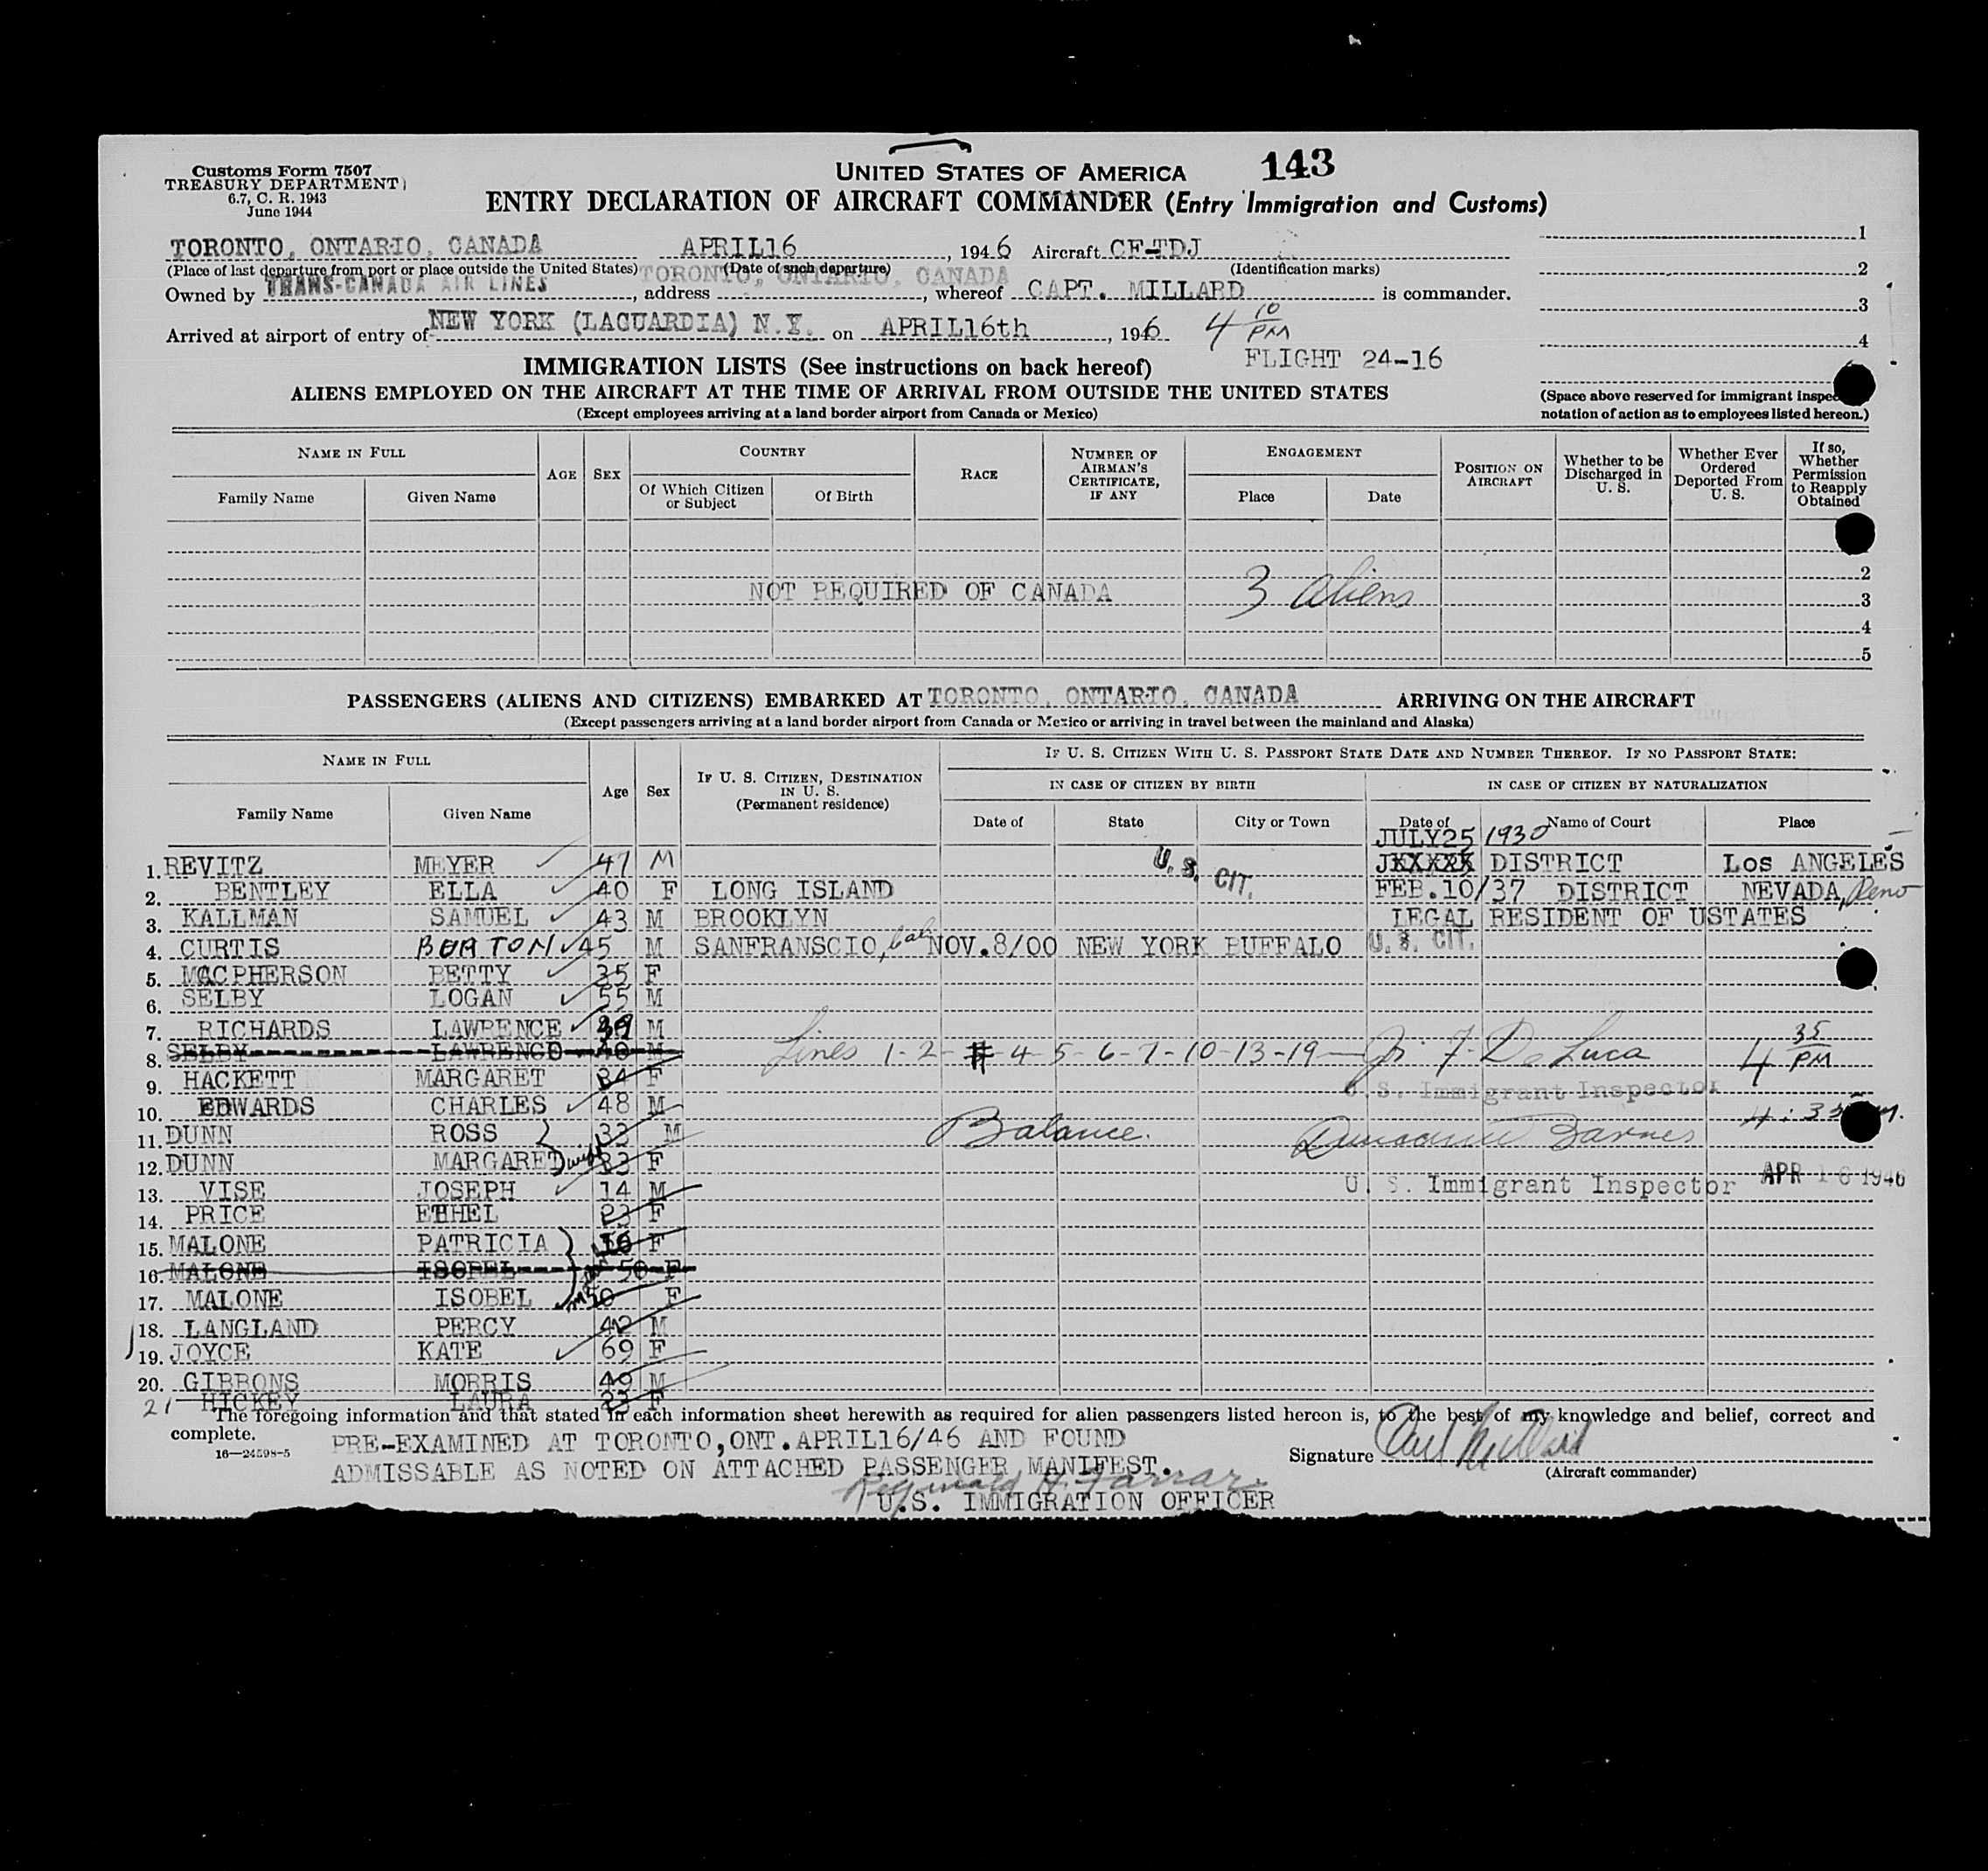 Customs Form 7507
TREASURY DEPARTMENT
6.7, C. R. 1943
June 1944
UNITED STATES OF AMERICA 143
ENTRY DECLARATION OF AIRCRAFT COMMANDER (Entry Immigration and Customs)
TORONTO, ONTARIO, CANADA APRIL16, 1946 Aircraft CF-TDJ
(Place of last departure from port or place outside the United States) (Date of such departure) (Identification marks)
Owned by TRANS-CANADA AIR LINES, address TORONTO, ONTARIO, CANADA, whereof CAPT. MILLARD is commander.
Arrived at airport of entry of NEW YORK (LAGUARDIA) N.Y. on APRIL16th, 1946 4 10 PM
FLIGHT 24-16
1
2
3
4
(Space above reserved for immigrant
notation of action as to employees listed hereon.)
IMMIGRATION LISTS (See instructions on back hereof)
ALIENS EMPLOYED ON THE AIRCRAFT AT THE TIME OF ARRIVAL FROM OUTSIDE THE UNITED STATES
(Except employees arriving at a land border airport from Canada or Mexico)
NAME IN FULL AGE SEX COUNTRY RACE NUMBER OF AIRMAN'S CERTIFICATE, IF ANY ENGAGEMENT POSITION ON AIRCRAFT Whether to be Discharged in U. S. Whether Ever Ordered Deported From U. S. If so, Whether Permission to Reapply Obtained
Family Name Given Name Of Which Citizen or Subject Of Birth Place Date
2
NOT REQUIRED OF CANADA 3 aliens 3
4
5
PASSENGERS (ALIENS AND CITIZENS) EMBARKED AT TORONTO, ONTARIO, CANADA ARRIVING ON THE AIRCRAFT
(Except passengers arriving at a land border airport from Canada or Mexico or arriving in travel between the mainland and Alaska)
NAME IN FULL Age Sex IF U. S. CITIZEN, DESTINATION IN U. S. (Permanent residence) IF U. S. CITIZEN WITH U. S. PASSPORT STATE DATE AND NUMBER THEREOF. IF NO PASSPORT STATE:
IN CASE OF CITIZEN BY BIRTH IN CASE OF CITIZEN BY NATURALIZATION
Family Name Given Name Date of State City or Town Date of Name of Court Place
JULY25 1930
1. REVITZ MEYER 47 M U. S. CIT. DISTRICT Los ANGELES
2. BENTLEY ELLA 40 F LONG ISLAND FEB.10/37 DISTRICT NEVADA, Reno
3. KALLMAN SAMUEL 43 M BROOKLYN LEGAL RESIDENT OF USTATES
4. CURTIS BURTON 45 M SANFRANSCIO, Cal NOV.8/00 NEW YORK BUFFALO U. S. CIT.
5. MACPHERSON BETTY 35 F
6. SELBY LOGAN 55 M
7. RICHARDS LAWRENCE 39 M
8. SELBY LAWRENCE 40 M Lines 1-2- 4-5-6-7-10-13-19 F. De Luca 4 35 PM
9. HACKETT MARGARET 34 F U.S. Immigrant Inspector
10. EDWARDS CHARLES 48 M
11. DUNN ROSS 33 M Balance. Barnes
12. DUNN MARGARET 33 F
13. VISE JOSEPH 14 M U. S. Immigrant Inspector APR 16 1946
14. PRICE ETHEL 23 F
15. MALONE PATRICIA 16 F
16. MALONE ISOBEL 50 F
17. MALONE ISOBEL 50 F
18. LANGLAND PERCY 42 M
19. JOYCE KATE 69 F
20. GIBBONS MORRIS 49 M
21 HICKEY LAURA 23 F
The foregoing information and that stated in each information sheet herewith as required for alien passengers listed hereon is, to the best of my knowledge and belief, correct and
complete.
16—24598-5
PRE-EXAMINED AT TORONTO,ONT.APRIL16/46 AND FOUND
ADMISSABLE AS NOTED ON ATTACHED PASSENGER MANIFEST.
Signature
(Aircraft commander)
Reginald H. Farrar
U.S. IMMIGRATION OFFICER